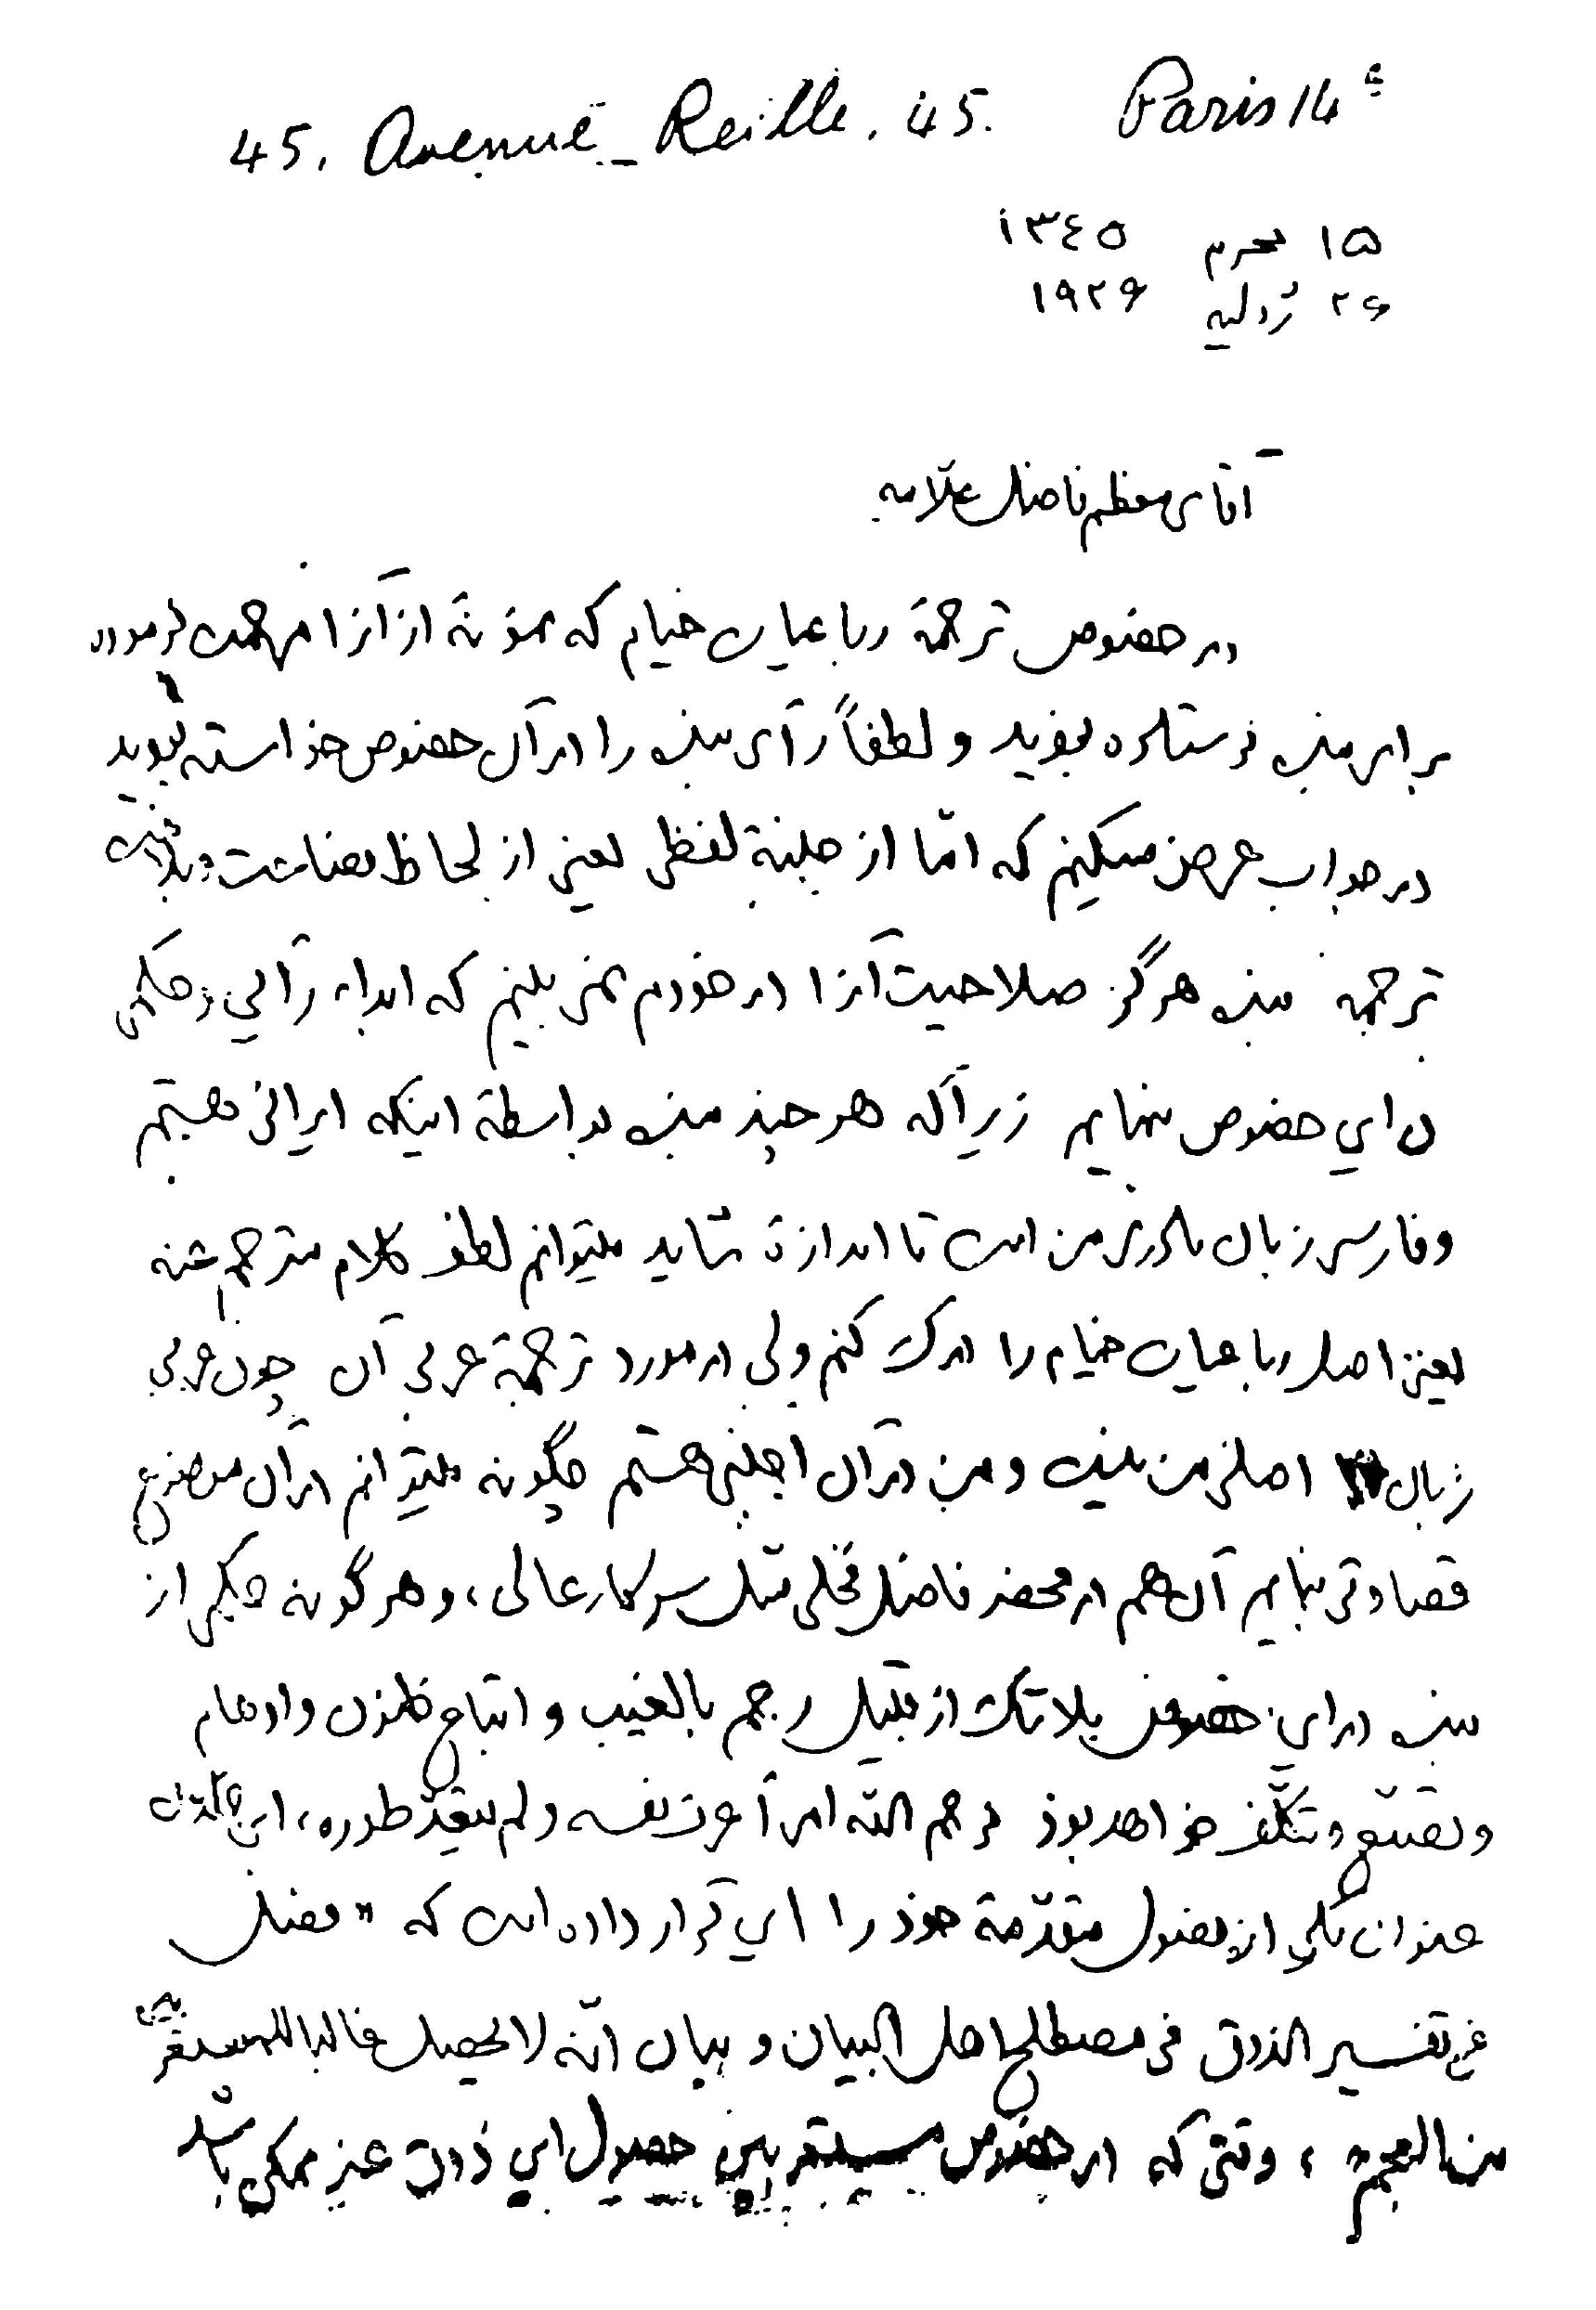 45, Avenue Reille, 45. Paris 14e
۱۵ محرم ۱۳٤۵
۲۶ ژولیه ۱۹۲۶
آقای معظم فاضل علّامه
در خصوص ترجمهٔ رباعیات خیام که نمونهٔ از آنرا مرحمت فرموده
برای بنده فرستاده بودید و لطفاً رأی بنده را در آن خصوص خواسته بودید
در جواب عرض میکنم که امّا از جنبهٔ لفظی یعنی از لحاظ فصاحت و بلاغت
ترجمه بنده هرگز صلاحیت آنرا در خودم نمی بینم که ابداء رأیی و حکمی
در این خصوص بنمایم زیرا که هر چند بنده بواسطهٔ اینکه ایرانی هستم
و فارسی زبان مادری من است تا اندازهٔ شاید میتوانم لطف کلام مترجم عنه
یعنی اصل رباعیات خیام را درک کنم ولی در مورد ترجمهٔ عربی آن چون عربی
زبان اصلی من نیست و من در آن اجنبی هستم چگونه میتوانم در آن موضوع
قضاوتی بنمایم آن هم در محضر فاضل فحلی مثل سرکار عالی، و هر گونه حکمی از
بنده در این خصوص بلا شک از قبیل رجم بالغیب و اتباع ظنون و اوهام
و تصنّع و تکلّف خواهد بود فرحم الله امرأ عرف نفسه و لم یتعدّ طوره، ابن خلدون
عنوان یکی از فصول مقدّمهٔ خود را این قرار داده است که «فصل
فی تفسیر الذوق فی مصطلح اهل البیان و بیان انّه لا یحصل غالبا للمستعربین
من العجم»، وقتی که در خصوص مستعربین حصول این ذوق غیر ممکن باشد